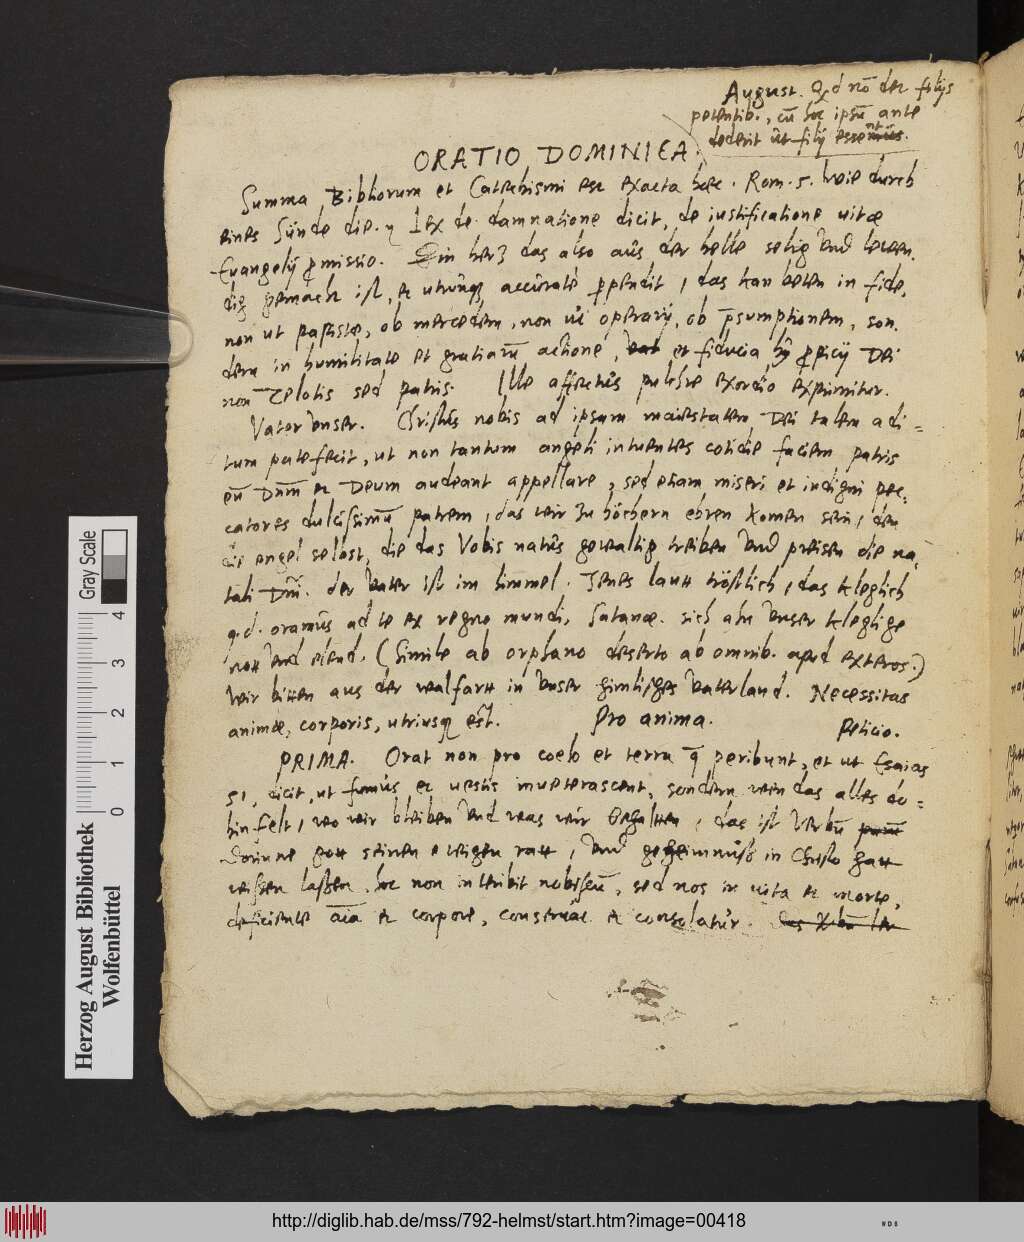 August. Qd nō det filijs
petentib., cū hoc ipsū ante
dederit ut filij essent
ORATIO DOMINICA.
Summa Bibliorum et Catechismi est exacta haec. Rom. 5. wie durch
eines Sünde die. Lex de damnatione dicit, de iustificatione uitae
Euangelij pmissio. Ein hertz das also aus der helle selig vnd leben.
dig gemacht ist, et utrunq accurate perpendit, das kan beten in fide,
non ut papistae, ob mercedem, non ut operarij, ob psumptionem, son.
dern in humilitate et gratiarū actione, et fiducia ppicij Dei
non Zelotis sed patris. Ille affectus pulchre exordio exprimitur.
Vater vnser. Christus nobis ad ipsam maiestatem Dei talem adi=
tum patefecit, ut non tantum angeli intuentes cotidie faciem patris
eū Dnm et Deum audeant appellare, sed etiam miseri et indigni pec=
catores dulcissimū patrem, das wir zu höchern ehren komen sein, den
die engel selbst, die das Vobis natus gewaltig treiben vnd preisen die na=
tali Dni. der vater ist im himmel. Jenes laut tröstlich, das kleglich
q.d. oramus ad te ex regno mundi, Satanae. sieh ahn vnser kleglige
nott vnd elend. (Simile ab orphano deserto ab omnib. apud exteros.)
Wir bitten aus der walfart in vnser himlisches vaterland. Necessitas
animae, corporis, utriusq est. Pro anima. Peticio.
PRIMA. Orat non pro coelo et terra q peribunt, et ut Esaias
51. dicit, ut fumus et uestis inueterascent, sondern wen das alles do=
hin felt, wo wir bleiben vnd was wir behalten, das ist Verbū
Dorinne gott seinen ewigen ratt, vnd geheimnuß in Christo hatt
wissen lassen. hoc non interibit nobiscū, sed nos in uita et morte,
deficiente aīa et corpore, conseruat et consolatur.
Gray Scale
0 1 2 3 4
Herzog August Bibliothek
Wolfenbüttel
http://diglib.hab.de/mss/792-helmst/start.htm?image=00418